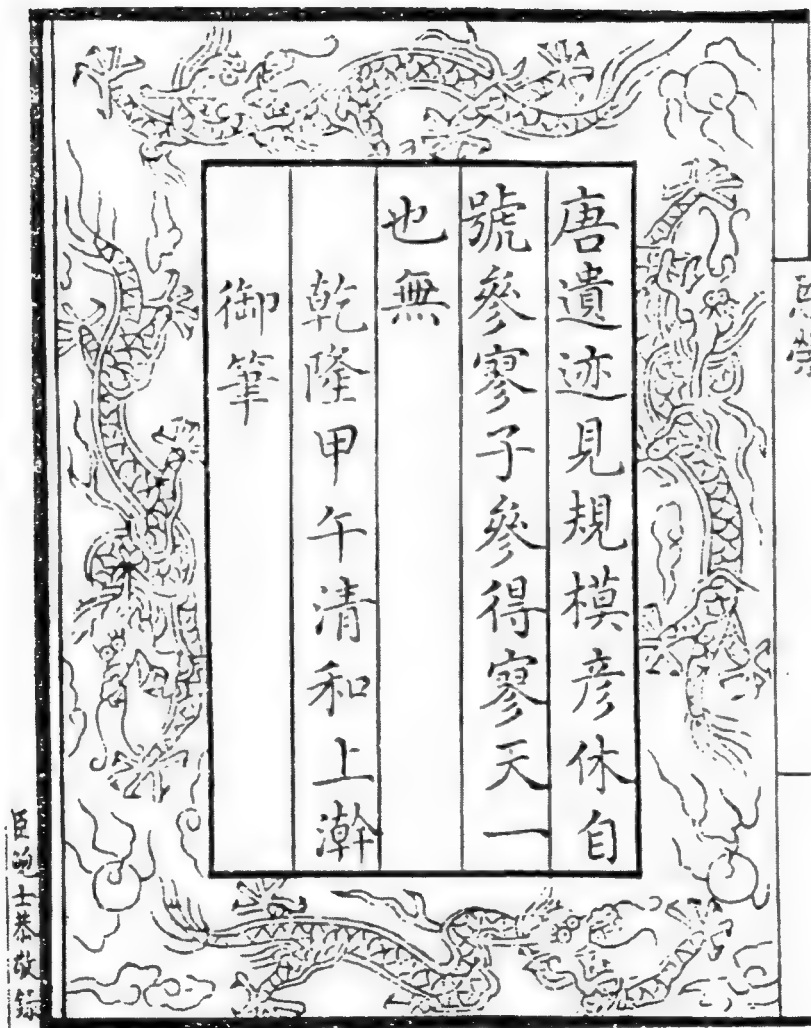 唐遺迹見規模彥休自
號參寥子參得寥天一
也無
乾隆甲午清和上澣
御筆
臣鮑士恭敬錄